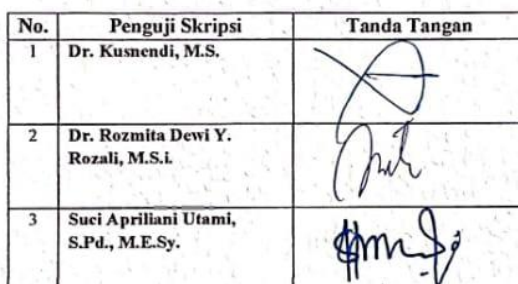 No. Penguji Skripsi Tanda Tangan
1 Dr. Kusnendi, M.S.
2 Dr. Rozmita Dewi Y.
Rozali, M.S.i.
3 Suci Apriliani Utami,
S.Pd., M.E.Sy.